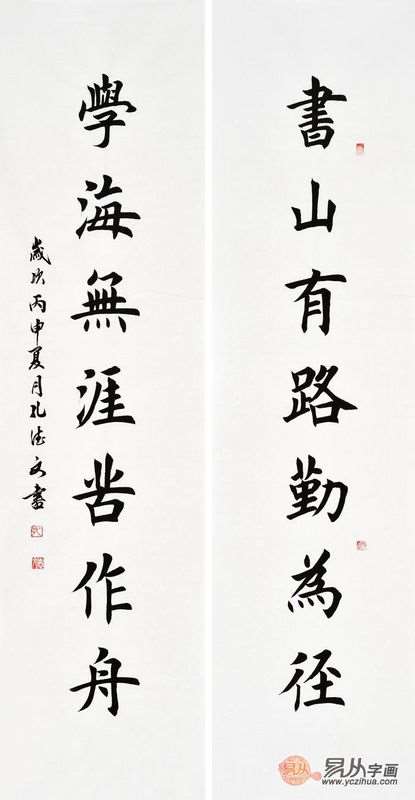 書山有路勤為徑
學海無涯苦作舟
歲次丙申夏月孔德文書
易从字画
www.yczihua.com